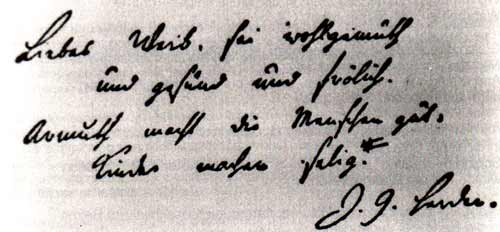 Liebes Weib, sei wohlgemuth
und gesund und frölich.
Armuth macht die Menschen gut,
Kinder machen selig.*
J. G. Herder.